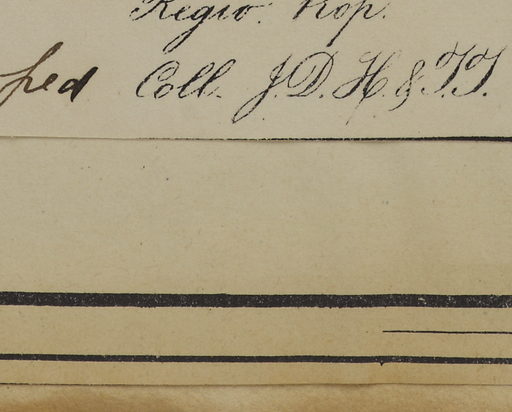 Regio: Trop.
ped Coll. J.D.H. & T.T.